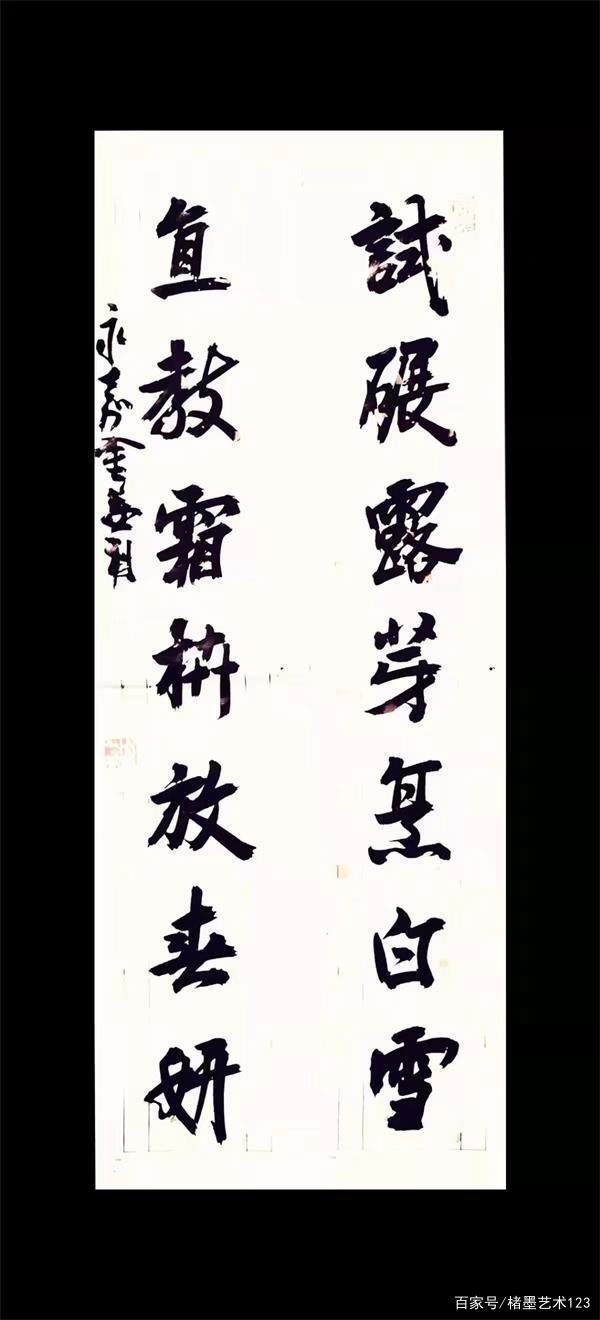 試碾露芽烹白雪
直教霜枿放春妍
永嘉金
百家号/楮墨艺术123